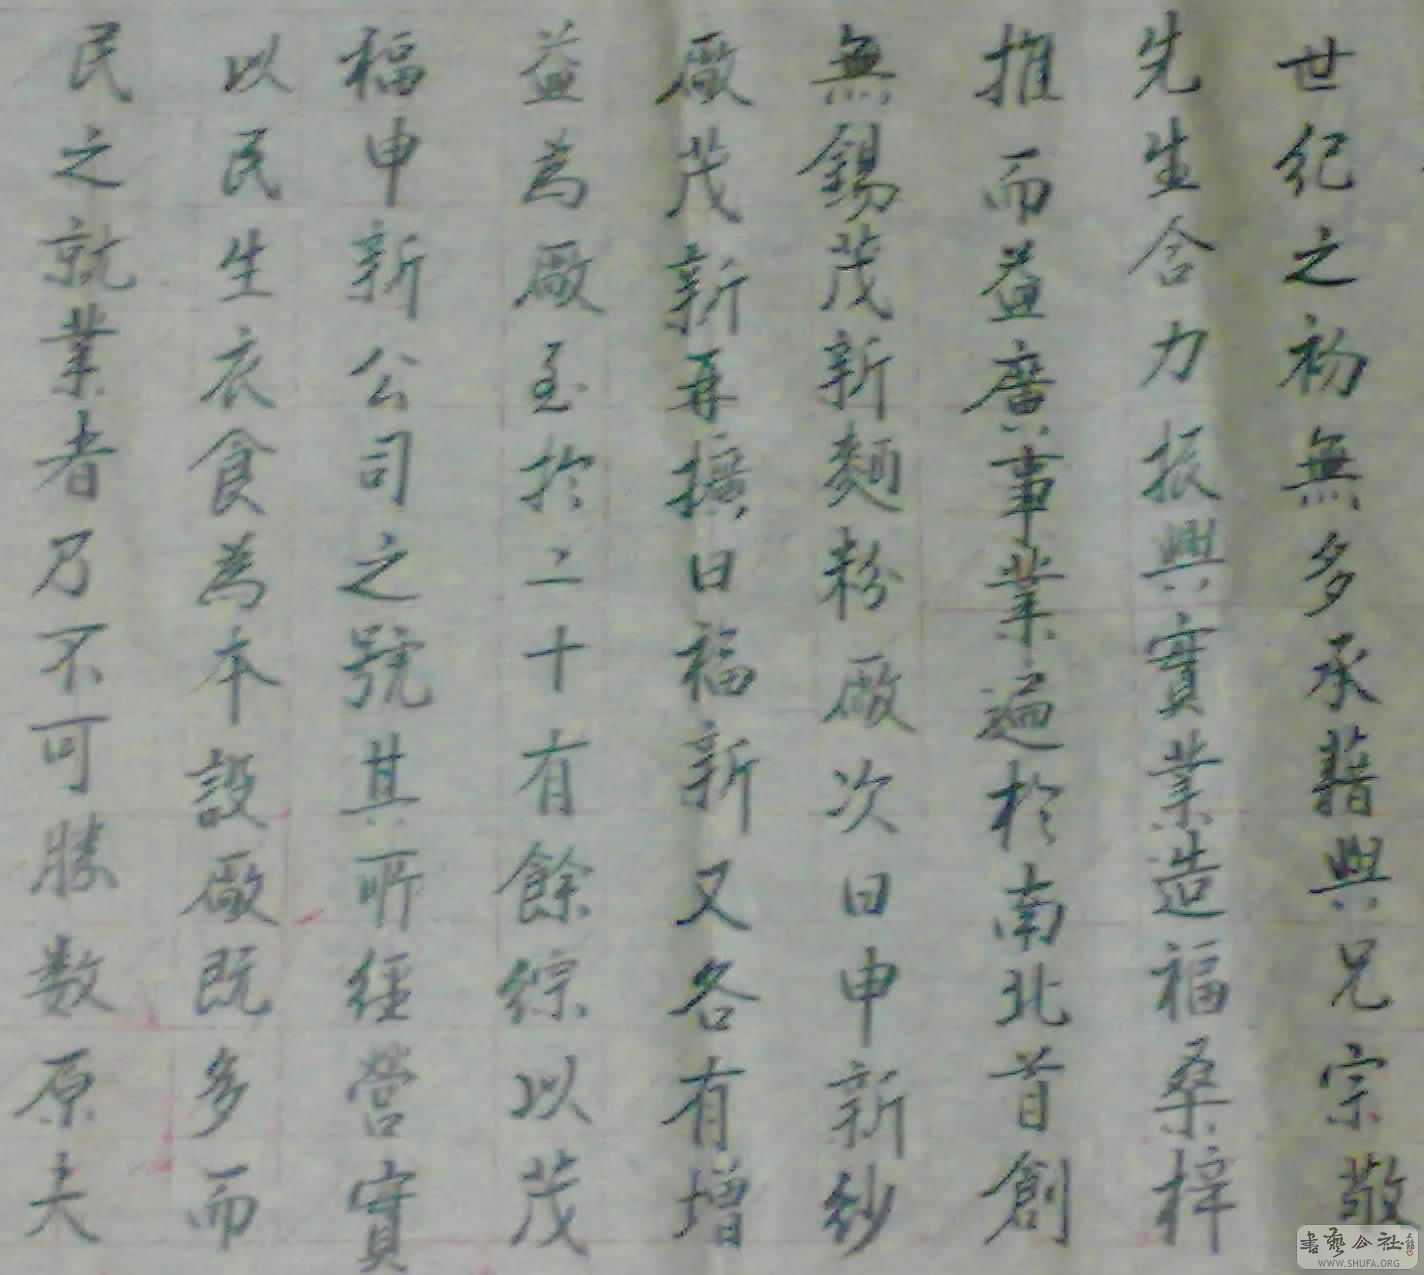 世纪之初無多承藉與兄宗敬
先生合力振興實業造福桑梓
推而益廣事業遍於南北首創
無錫茂新麵粉廠次曰申新紗
廠茂新再擴曰福新又各有增
益為廠至於二十有餘綜以茂
福申新公司之號其所經營實
以民生衣食為本設廠既多而
民之就業者乃不可勝数原夫
書藝公社
WWW.SHUFA.ORG